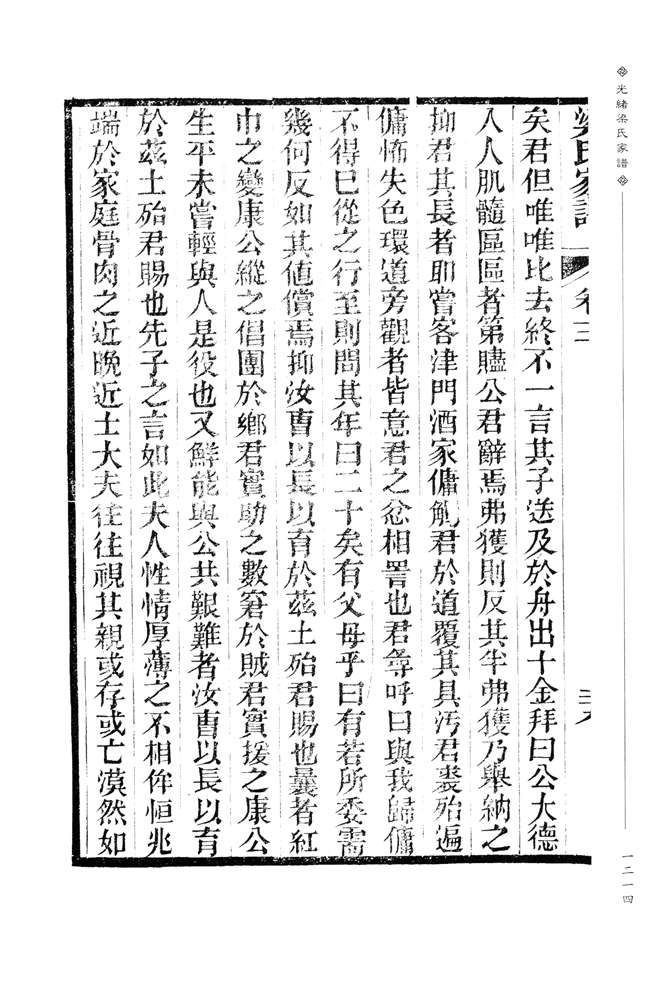 光緒梁氏家譜
一二一四
梁氏家譜 卷三
矣君但唯唯比去終不一言其子送及於舟出十金拜曰公大德
入人肌髓區區者第贐公君辭焉弗獲則反其半弗獲乃舉納之
抑君其長者耶嘗客津門酒家傭觓君於道覆其具污君裘殆遍
傭怖失色環道旁觀者皆意君之忿相詈也君尋呼曰與我歸傭
不得已從之行至則問其年曰二十矣有父母乎曰有若所委需
幾何反如其値償焉抑汝曹以長以育於茲土殆君賜也曩者紅
巾之變康公縱之倡團於鄉君實助之數窘於賊君實援之康公
生平未嘗輕與人是役也又鮮能與公共艱難者汝曹以長以育
於茲土殆君賜也先子之言如此夫人性情厚薄之不相侔恒兆
端於家庭骨肉之近晚近士大夫往往視其親或存或亡漠然如